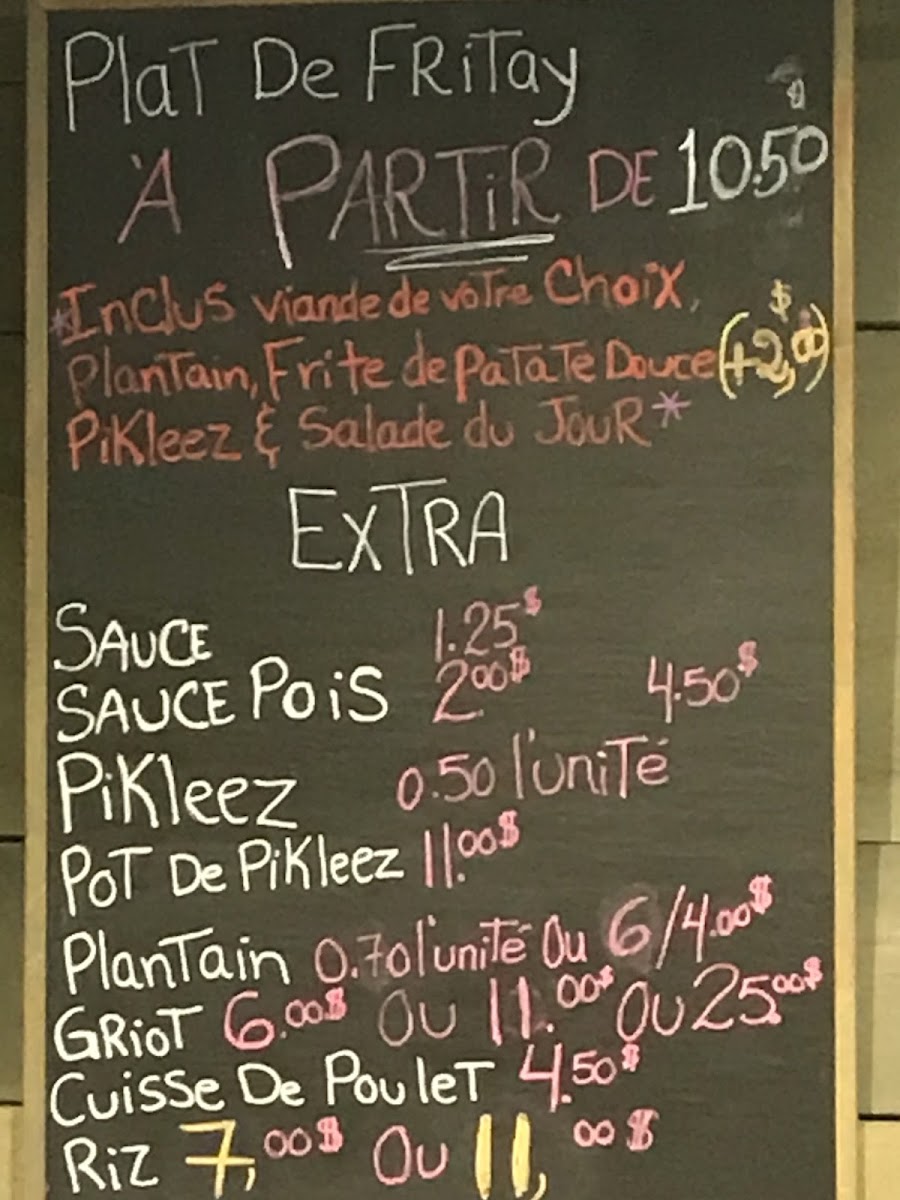 PlaT De FRiTay
À PARTiR DE 10.50
*Inclus viande de voTre Choix,
PlanTain, Frite de paTaTe Douce (+2,00$)
PiKleez & Salade du JouR*
ExTRA
SAUCE 1.25$
SAUCE PoiS 2.00$ 4.50$
PiKleez 0.50 l'uniTé
PoT De PiKleez 11.00$
PlanTain 0.70 l'unité Ou 6/4.00$
GRioT 6.00$ OU 11.00$ OU 25.00$
Cuisse De PouleT 4.50$
Riz 7,00$ Ou 11,00$